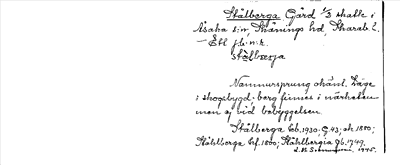 Stålberga Gård 1/3 skatte i
Åsaka s:n, Skånings hd, Skarab. l.
— Etl j.b. n:r.
stålbærja
Namnursprung okänt. Läge
i skogsbygd, berg finnes i närheten
men ej vid bebyggelsen
Stålberga Eb. 1930; G. 43; ek 1880;
Ståhlberga hf. 1800; Ståhlbergia Jb. 1749.
1945.